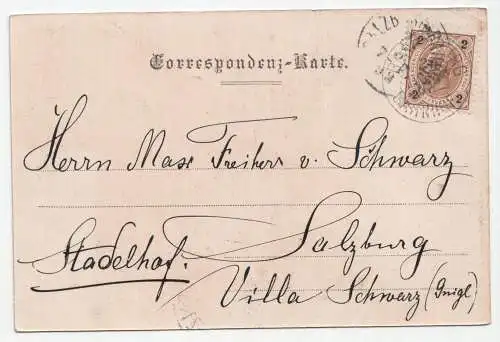 Correspondenz-Karte.
2 2
2 2
Herrn Max Freiherr v. Schwarz
Salzburg
Stadelhof.
Villa Schwarz (Gnigl)